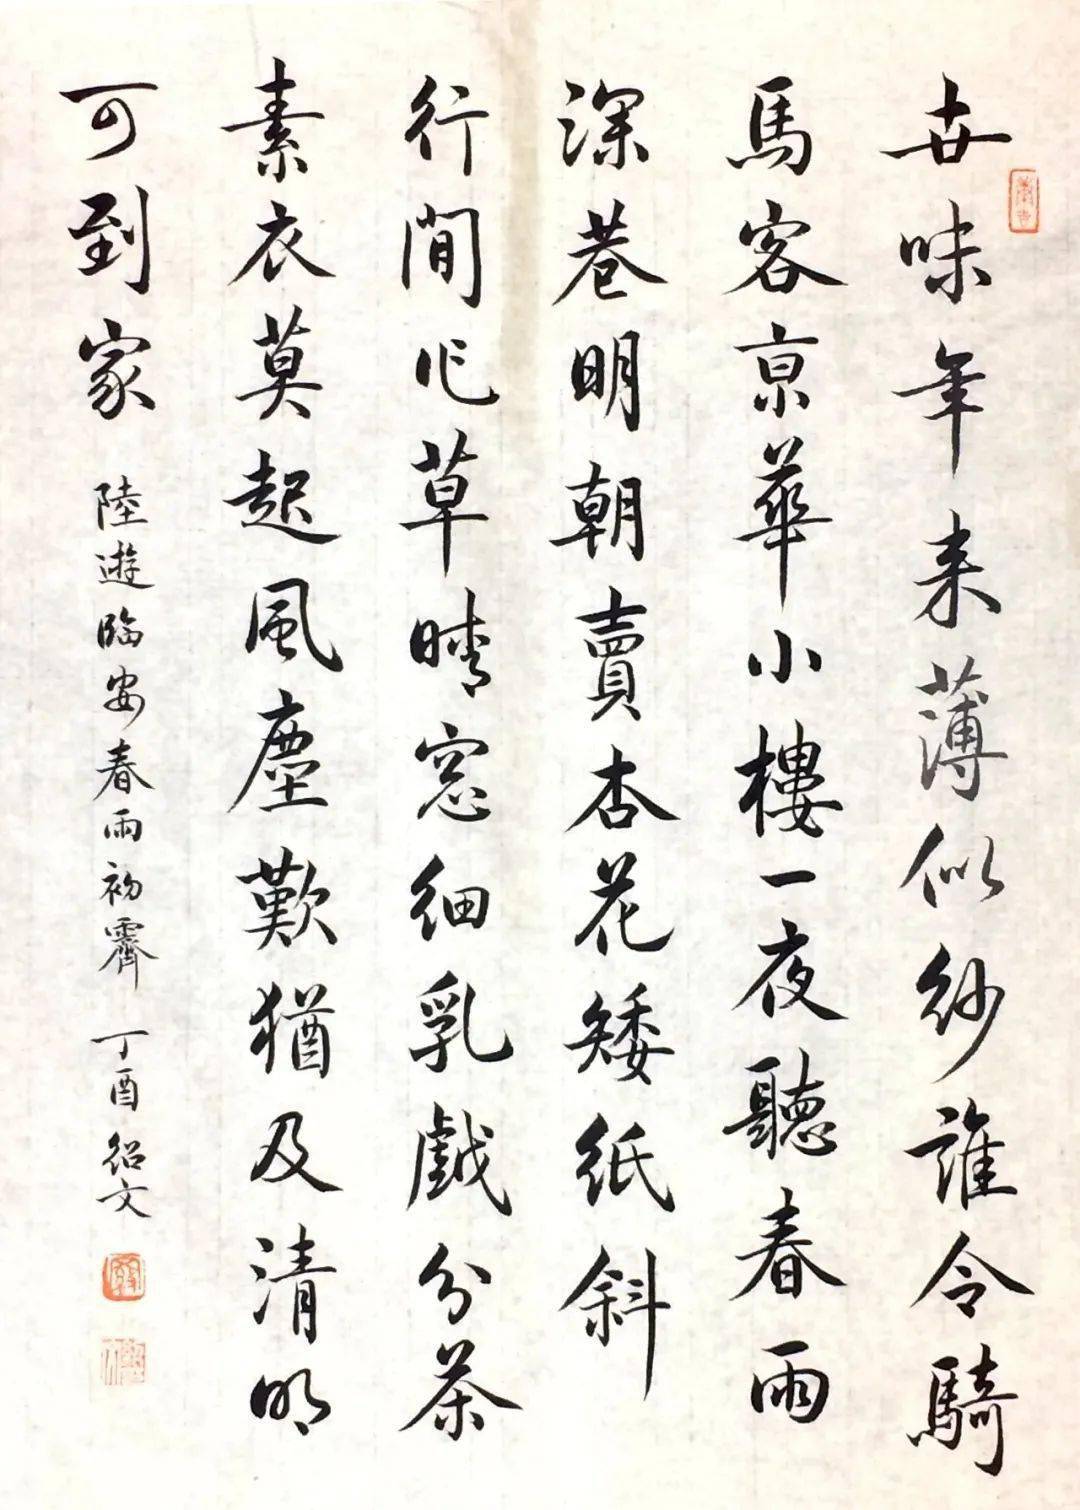 世味年来薄似紗誰令騎
馬客京華小樓一夜聽春雨
深巷明朝賣杏花矮紙斜
行閒作草晴窓細乳戲分茶
素衣莫起風塵歎猶及清明
可到家
陸遊臨安春雨初霽 丁酉 紹文